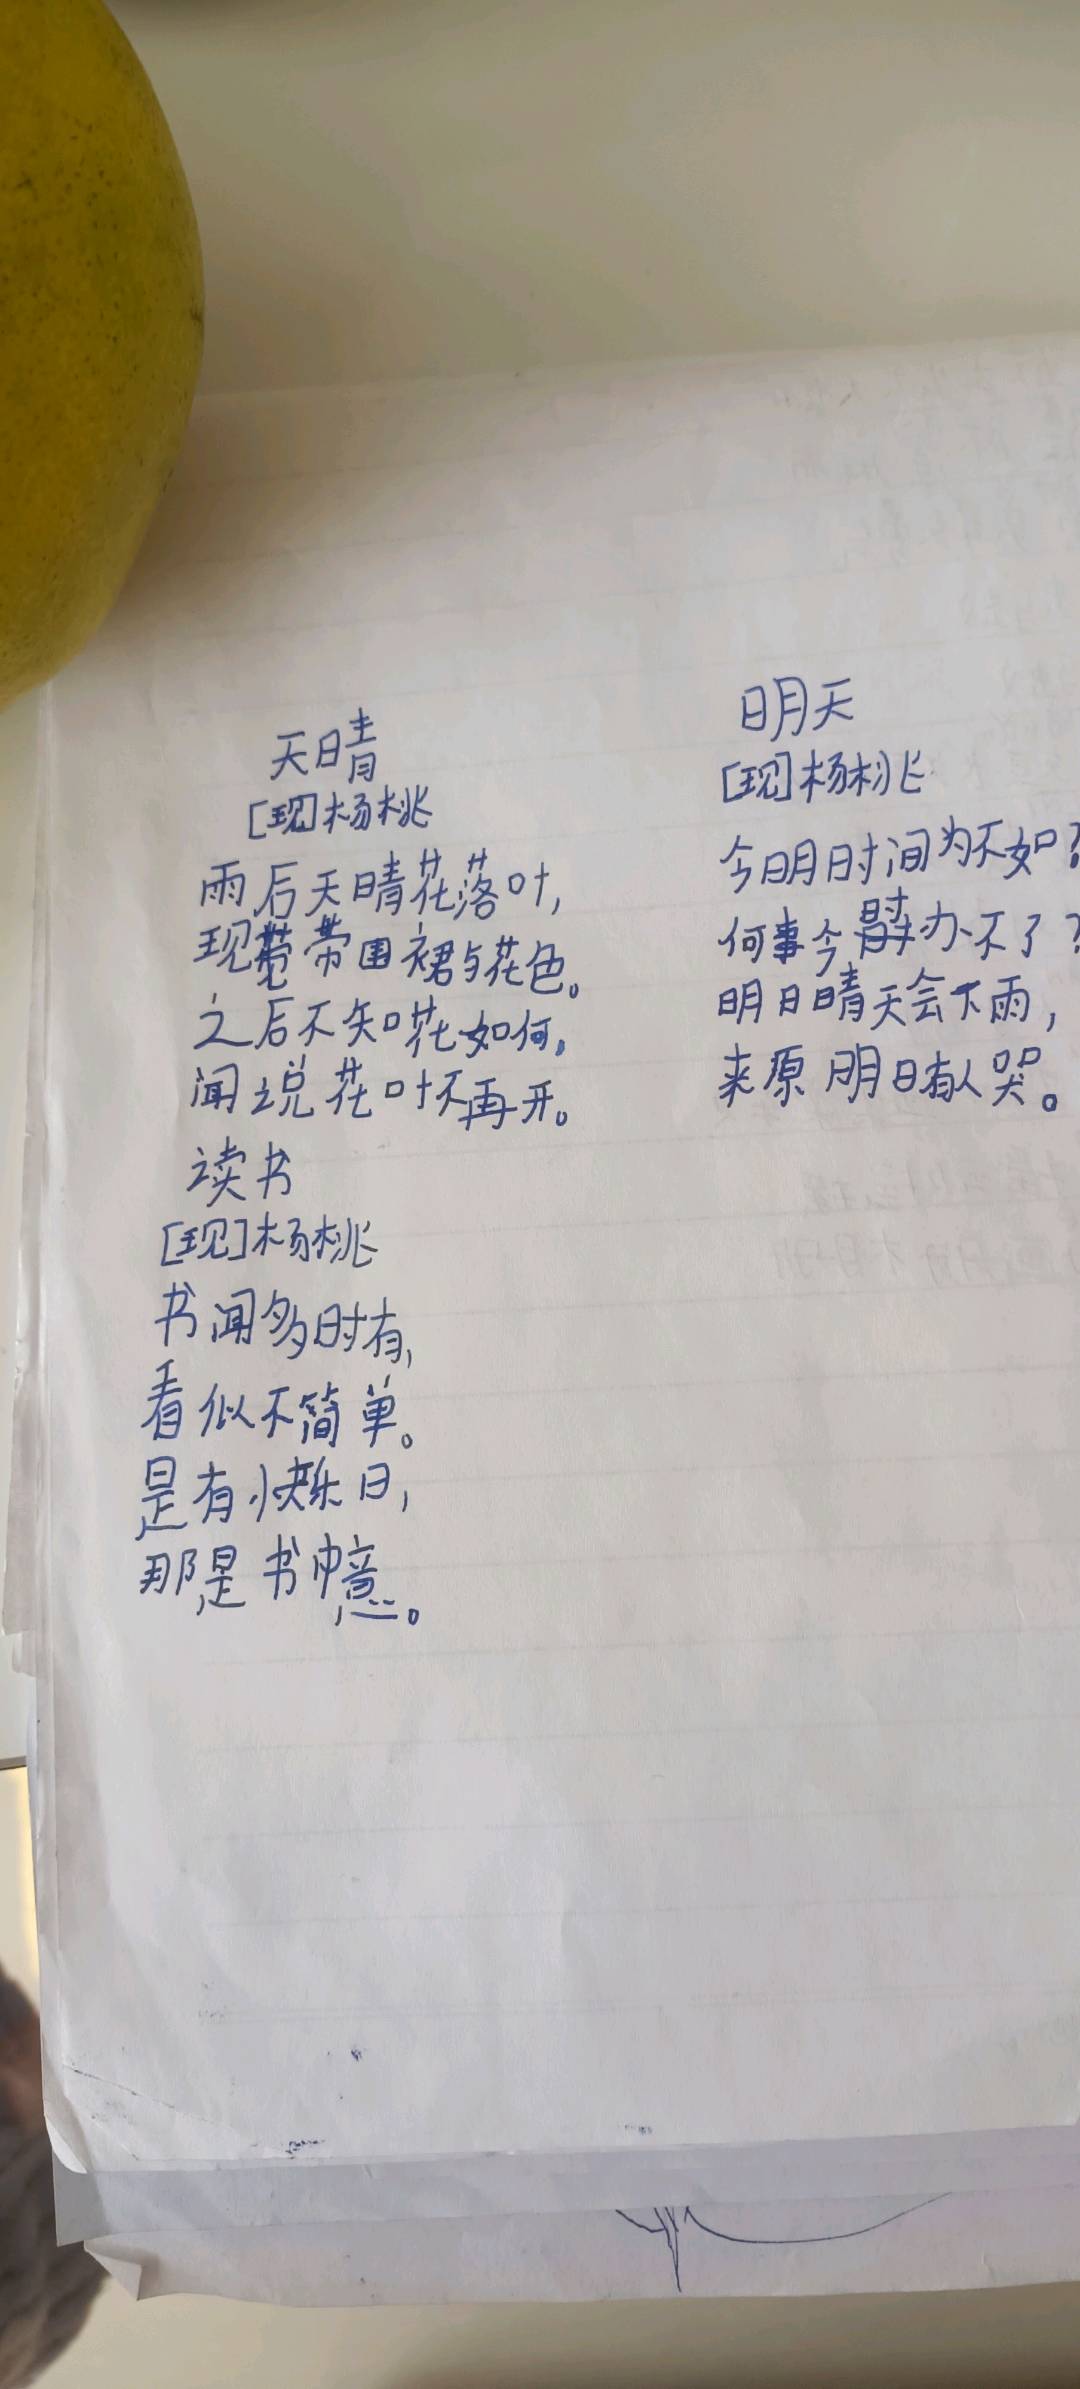 天晴
[现]杨桃
雨后天晴花落叶,
现带围裙与花色。
之后不知花如何,
闻说花叶不再开。
读书
[现]杨桃
书闻多时有,
看似不简单。
是有快乐日,
那是书中意。
明天
[现]杨桃
今明时间为不如?
何事今时办不了?
明日晴天会下雨,
来原明日有人哭。